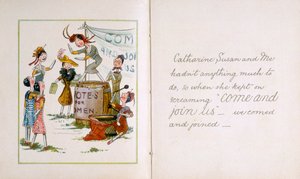 COM
AND JOI
US
OTES
FOR
MEN
Catharine Susan and Me
hadn't anything much to
do, so when she kept on
screaming "come and
join us" — we comed
and joined —